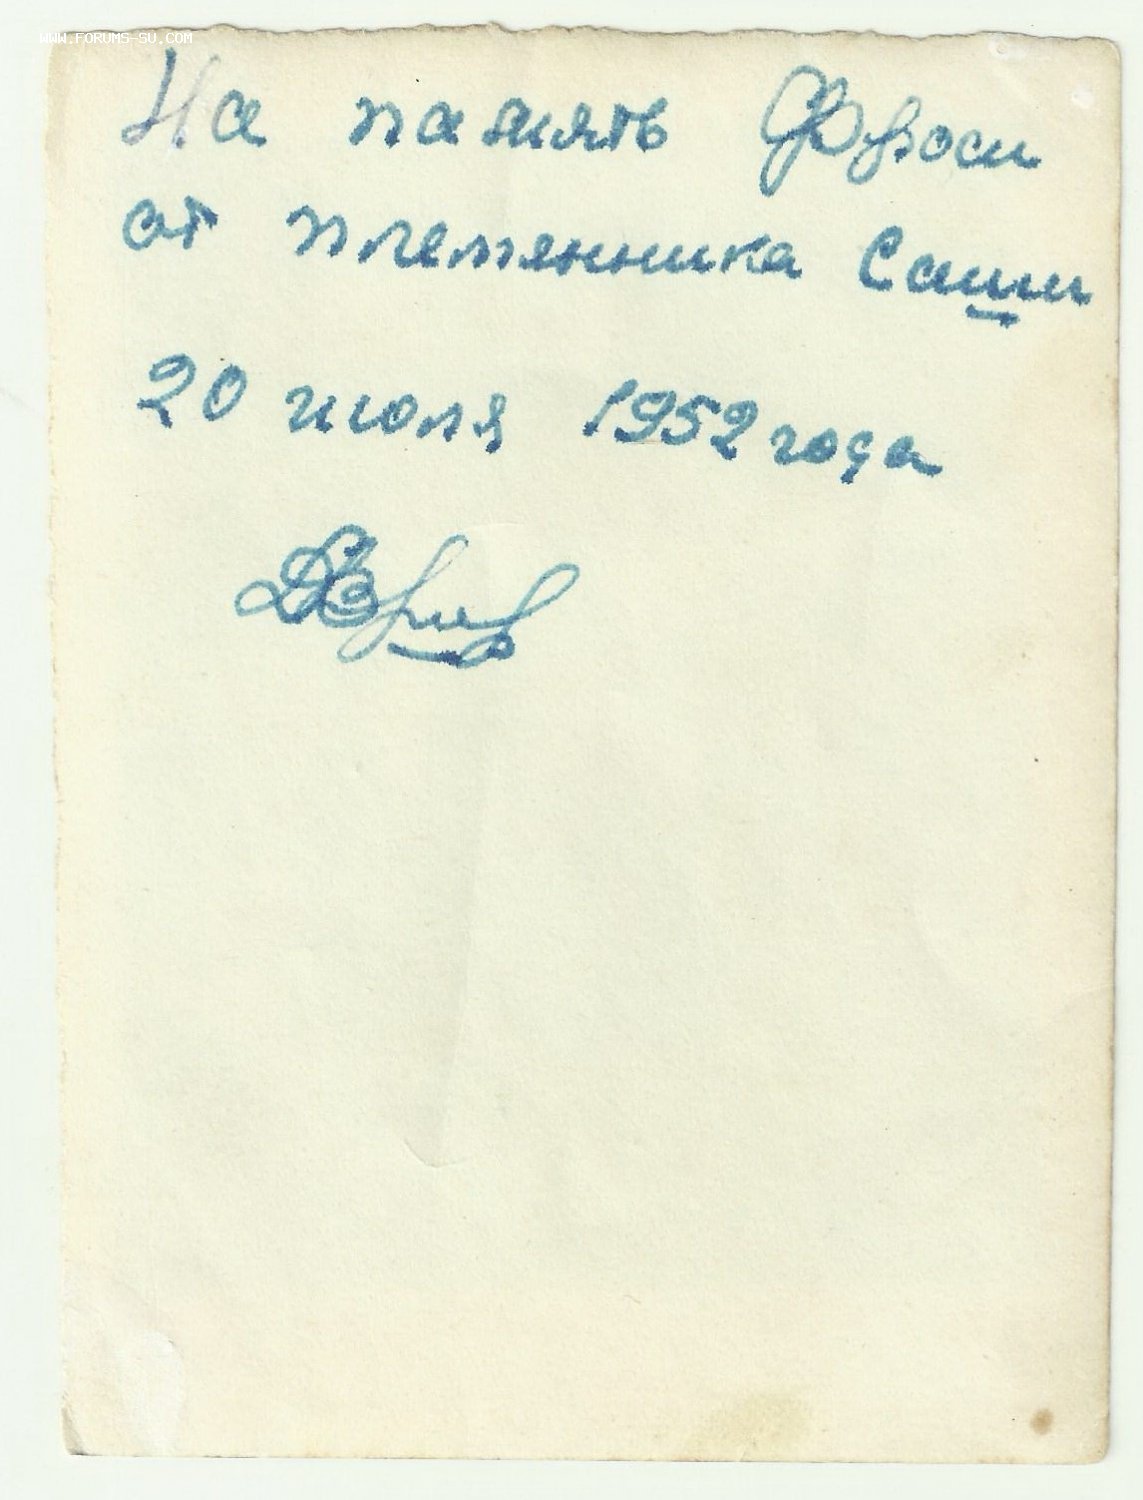 WWW.FORUMS-SU.COM
На память Фроси
от племянника Саши
20 июля 1952 года